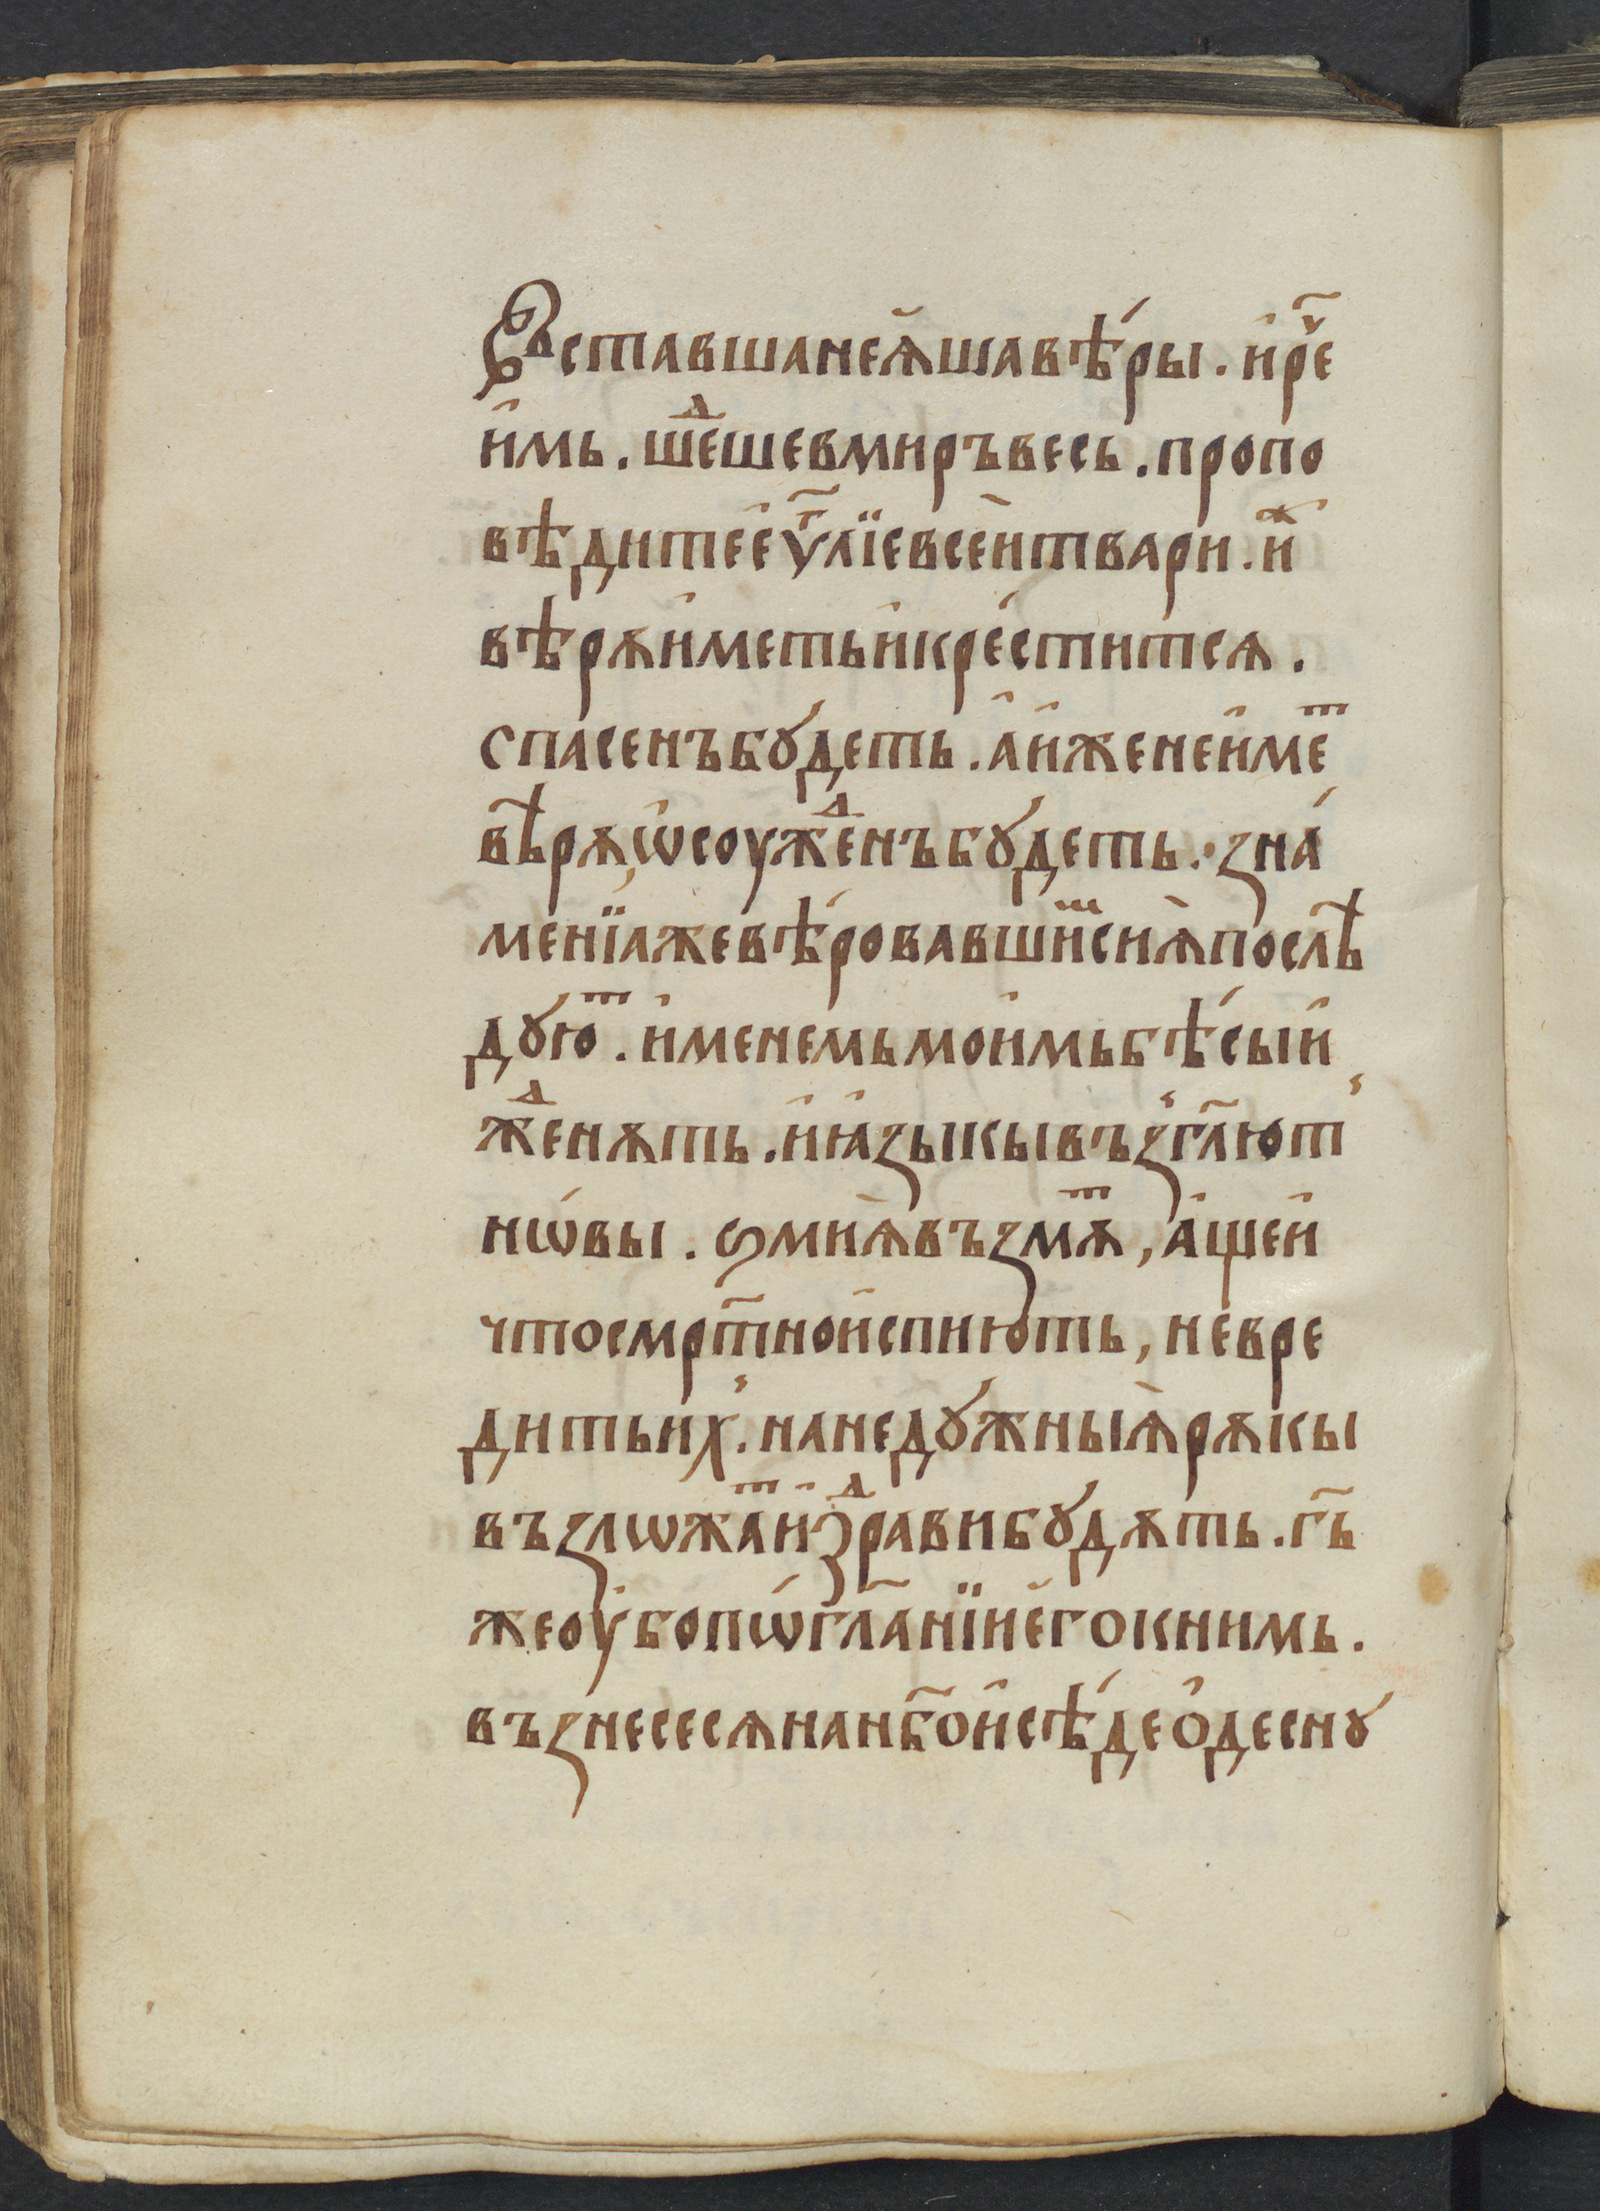 въставшанеѧ̑шавѣ́ры. и҆ре҃ч
и҆мь. шеⷣшевмиръвесь. пропо
вѣдитее҆у҃гл҇іевсе́итвари. и҆ⷤ
вѣрѫи҆метьи҆кре́ститсѧ.
спасенъбꙋ́деть. а҆и҆женеи҆меⷮ
вѣрѫ, ѡ҆соужⷣенъбꙋ́деть. ꙁна́
менїажевѣ́ровавшиⷨси́ѧпослѣ
дꙋ́юⷮ. и҆менемьмои҆мьбѣ́сыи҆
жⷣенѫть. и҆ꙗ҆ꙁыкывъꙁгл҃ют
нѡ́вы. ѕмиѧ̀въꙁмꙋⷮ, а҆щеи҆
чтосмрт҃нои҆спиють, невре
дитьих. нанедꙋ́жныѧ̀рѫкы
въꙁлѡжаⷮи҆ꙁⷣравибꙋ́дѫть. гь҃
жеоу҆бопѡ́гл҃анїие҆гокнимь.
въꙁнесесѧнанб҃ои҆сѣ́деѻ҆деснꙋ